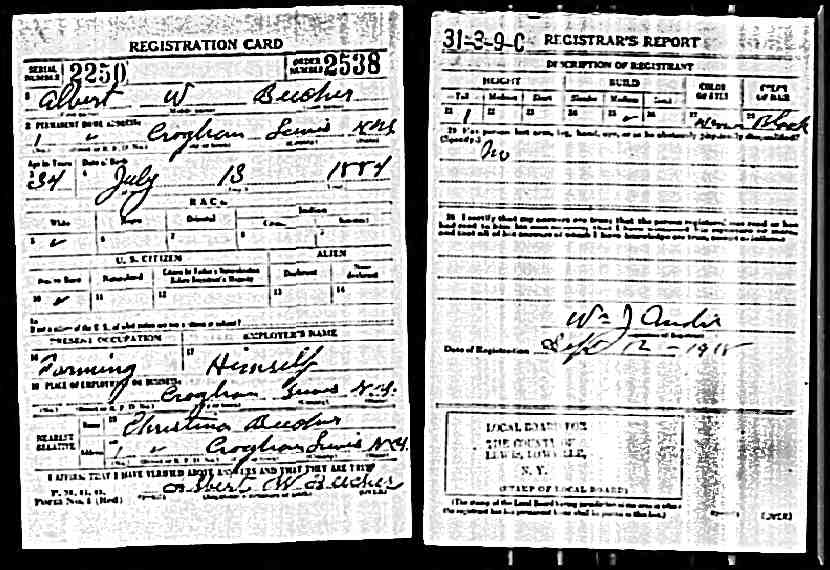 REGISTRATION CARD
SERIAL NUMBER 2250 ORDER NUMBER 2538
1 Albert W Beecher
2 PERMANENT HOME ADDRESS:
1 Croghan Lewis N.Y.
Age in Years Date of Birth
34 July 13 1884
RACE
White Negro Oriental Indian
5 6 7 8 9
U. S. CITIZEN ALIEN
10 11 12 13 14
15
PRESENT OCCUPATION EMPLOYER'S NAME
16 Farming 17 Himself
18 PLACE OF EMPLOYMENT OR BUSINESS:
Croghan Lewis N.Y.
NEAREST RELATIVE Name 19 Christina Beecher
Address Croghan Lewis N.Y.
I AFFIRM THAT I HAVE VERIFIED ABOVE ANSWERS AND THAT THEY ARE TRUE
Albert W Beecher
31-3-9-C REGISTRAR'S REPORT
DESCRIPTION OF REGISTRANT
HEIGHT BUILD COLOR OF EYES COLOR OF HAIR
Tall Medium Short Slender Medium
21 1 22 23 24 25 27 Brown 28 Black
29 Has person lost arm, leg, hand, eye, or is he obviously physically disqualified?
(Specify.) No
30 I certify that my answers are true; that the person registered has read or has
had read to him his own answers; that I have witnessed his signature or mark,
and that all of his answers of which I have knowledge are true, except as follows:
Wm J
Date of Registration Sept 12 - 1918
LOCAL BOARD FOR
THE COUNTY OF
LEWIS, LOWVILLE,
N. Y.
(STAMP OF LOCAL BOARD)
(The stamp of the Local Board having jurisdiction of the area in which
the registrant has his permanent home shall be placed in this box.)
(OVER)